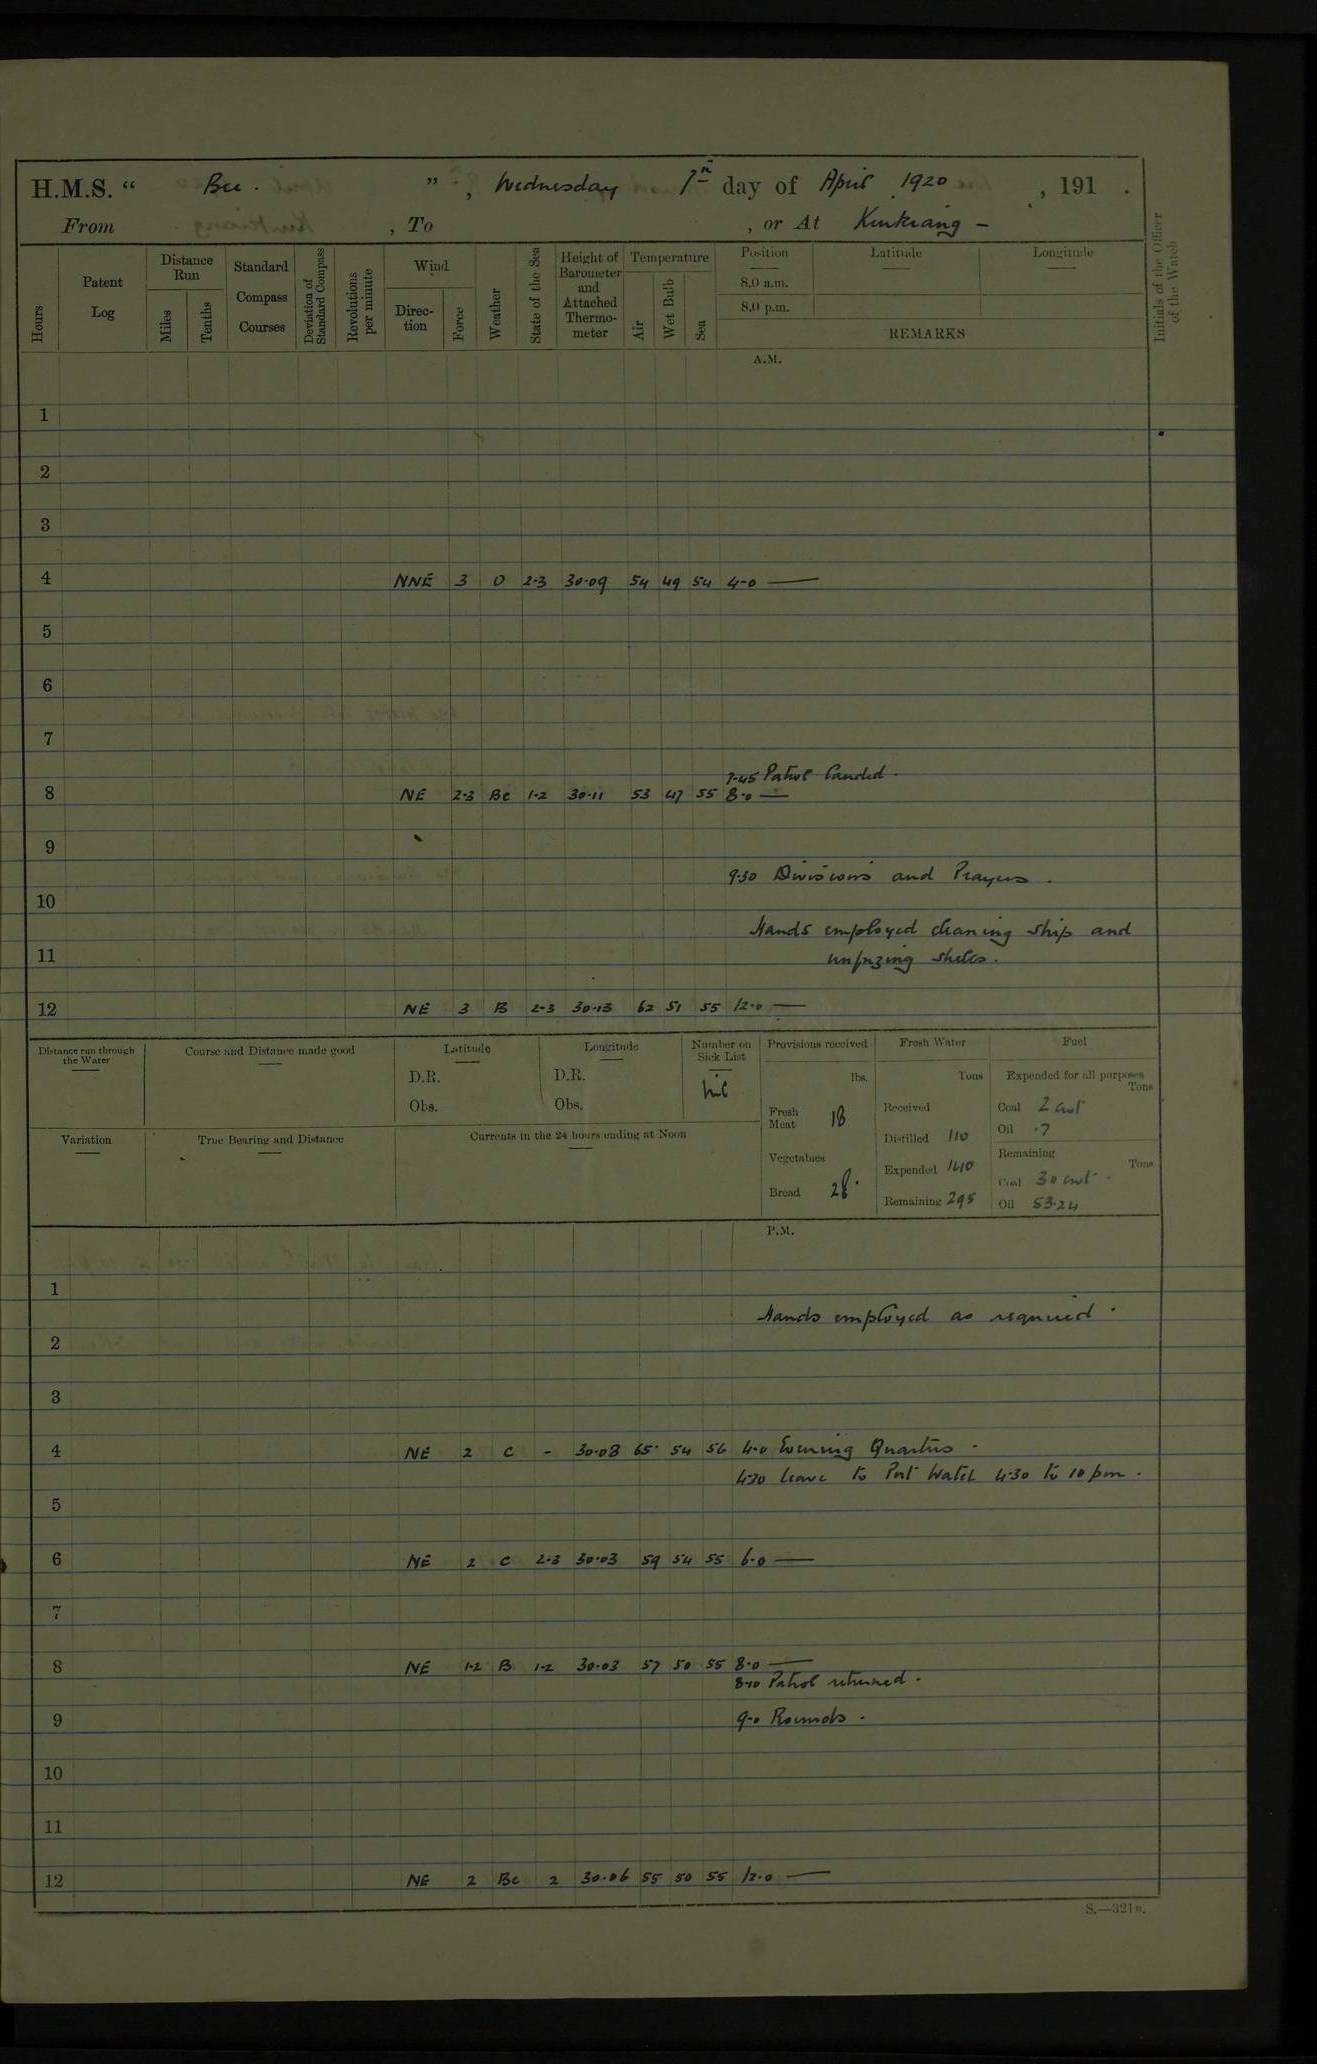 H.M.S. “ Bee. ” , Wednesday 7th day of April 1920 , 191 .
From , To , or At Kiukiang –
Hours
Patent Log
Distance Run
Miles
Tenths
Standard Compass Courses
Deviation of Standard Compass
Revolutions per minute
Wind
Direction
Force
Weather
State of the Sea
Height of Barometer and Attached Thermometer
Temperature
Air
Wet Bulb
Sea
Position
8.0 a.m.
8.0 p.m.
Latitude
Longitude
REMARKS
Initials of the Officer of the Watch
A.M.
1
2
3
4 NNE 3 O 2-3 30.09 54 49 54 4-0 —
5
6
7
7-45 Patrol landed.
8 NE 2-3 Bc 1-2 30.11 53 47 55 8.0 —
9
9.30 Divisions and Prayers.
10
Hands employed cleaning ship and
11 shells.
12 NE 3 B 2-3 30.13 62 51 55 12.0 —
Distance run through the Water
Course and Distance made good
Latitude
D.R.
Obs.
Longitude
D.R.
Obs.
Number on Sick List
nil
Provisions received
lbs.
Fresh Meat 18
Vegetables
Bread 28.
Fresh Water
Tons
Received
Distilled 110
Expended 140
Remaining 295
Fuel
Expended for all purposes
Tons
Coal 2 cwt
Oil .7
Remaining
Tons
Coal 30 cwt.
Oil 53.24
Variation
True Bearing and Distance
Currents in the 24 hours ending at Noon
P.M.
1
Hands employed as required.
2
3
4 NE 2 C - 30.08 65 54 56 4.0 Evening Quarters.
4.30 leave to Port Watch 4.30 to 10 pm.
5
6 NE 2 C 2-3 30.03 59 54 55 6.0 —
7
8 NE 1-2 B 1-2 30.03 57 50 55 8.0 —
8.10 Patrol returned.
9 9.0 Rounds.
10
11
12 NE 2 Bc 2 30.06 55 50 55 12.0 —
S.—321B.